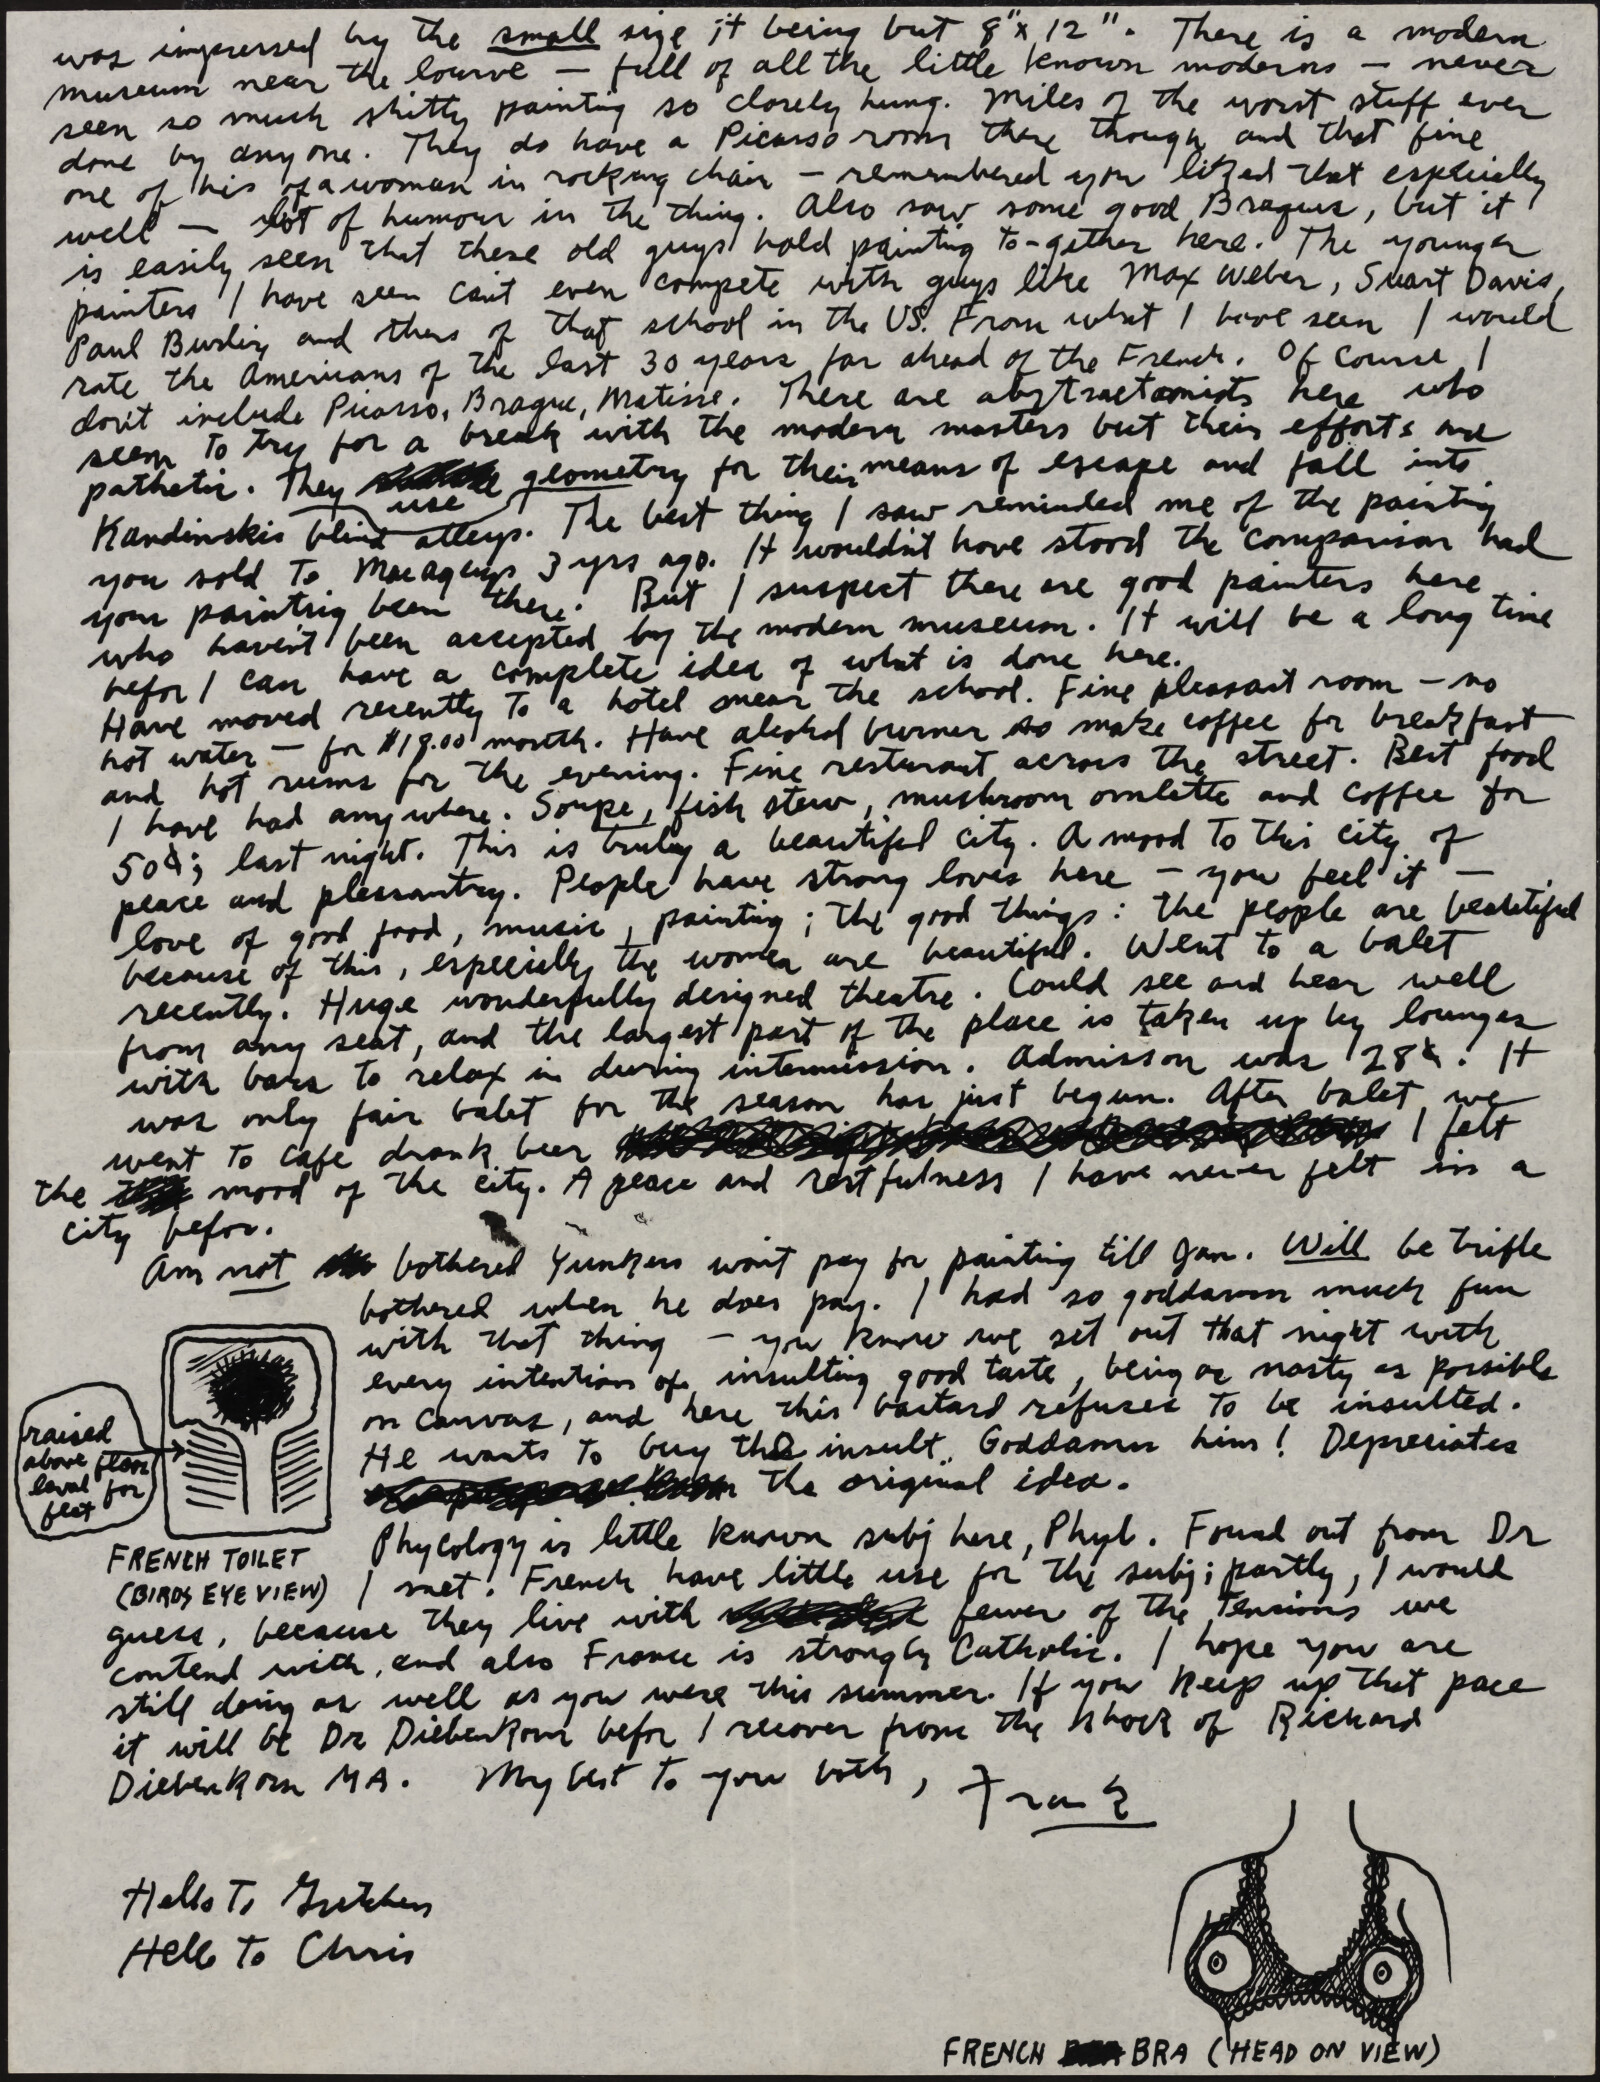 was impressed by the small size it being but 8" x 12". There is a modern
museum near the lourve — full of all the little known moderns — never
seen so much shitty painting so closely hung. Miles of the worst stuff ever
done by anyone. They do have a Picasso room there though and that fine
one of his of a woman in rocking chair — remembered you liked that especially
well — lot of humour in the thing. Also saw some good Braques, but it
is easily seen that these old guys hold painting to-gether here. The younger
painters I have seen can't even compete with guys like Max Weber, Stuart Davis,
Paul Burlin and others of that school in the US. From what I have seen I would
rate the Americans of the last 30 years far ahead of the French. Of course I
don't include Picasso, Braque, Matisse. There are abztractionists here who
seem to try for a break with the modern masters but their efforts are
pathetic. They use geometry for their means of escape and fall into
Kandinskis blind alleys. The best thing I saw reminded me of the painting
you sold to 3 yrs ago. It wouldn't have stood the comparison had
your painting been there. But I suspect there are good painters here
who haven't been accepted by the modern museum. It will be a long time
befor I can have a complete idea of what is done here.
Have moved recently to a hotel near the school. Fine pleasant room — no
hot water — for $19.00 month. Have alcohol burner so make coffee for breakfast
and hot rums for the evening. Fine resturant across the street. Best food
I have had anywhere. Soupe, fish stew, mushroom omlette and coffee for
50¢; last night. This is truly a beautiful city. A mood to this city of
peace and pleasantry. People have strong loves here — you feel it —
love of good food, music, painting; the good things: the people are beautiful
because of this, especially the women are beautiful. Went to a balet
recently. Huge wonderfully designed theatre. Could see and hear well
from any seat, and the largest part of the place is taken up by lounges
with bars to relax in during intermission. Admisson was 28¢. It
was only fair balet for the season has just begun. After balet we
went to cafe drank beer I felt
the mood of the city. A peace and restfulness I have never felt in a
city befor.
Am not bothered Yunkers won't pay for painting till Jan. Will be trifle
bothered when he does pay. I had so goddamn much fun
with that thing — you know we set out that night with
every intention of insulting good taste, being as nasty as possible
on canvas, and here this bastard refuses to be insulted.
He wants to buy the insult. Goddamn him! Depreciates
the original idea.
raised
above floor
level for
feet
FRENCH TOILET
(BIRDS EYE VIEW)
Phycology is little known subj here, Phyl. Found out from Dr
I met. French have little use for the subj; partly, I would
guess, because they live with fewer of the tensions we
contend with, and also France is strongly Catholic. I hope you are
still doing as well as you were this summer. If you keep up that pace
it will be Dr Diebenkorn befor I recover from the shock of Richard
Diebenkorn MA. My best to you both, Frank
Hello To Gretchen
Hello To Chris
FRENCH BRA (HEAD ON VIEW)